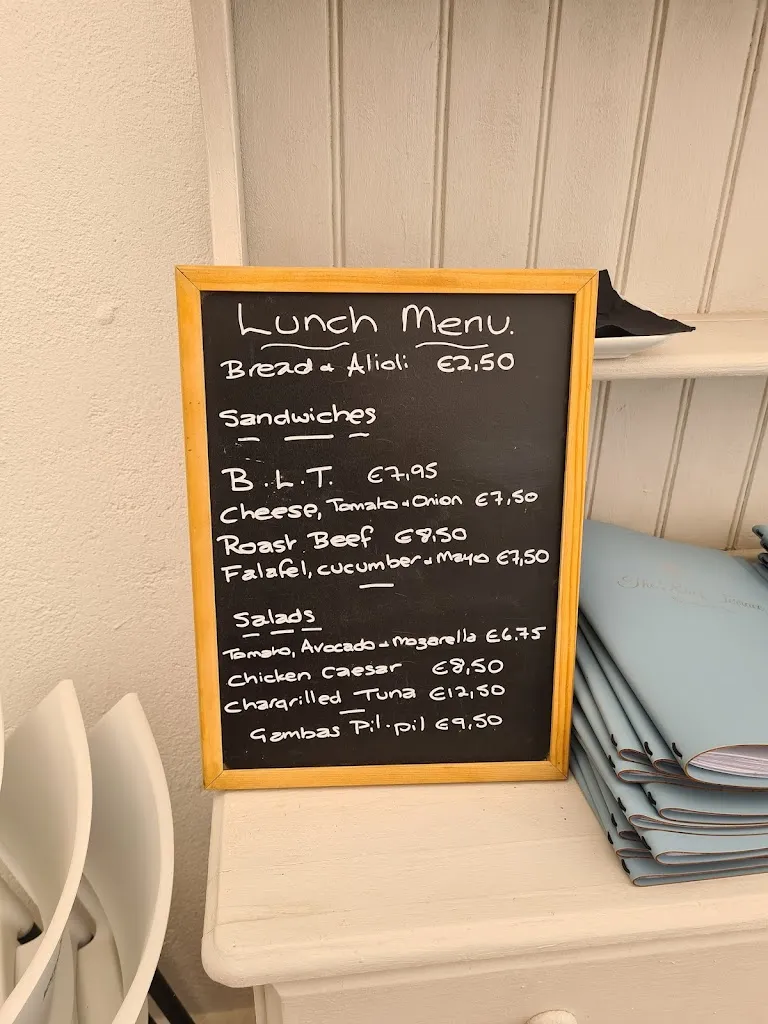 Lunch Menu.
Bread & Alioli €2,50
Sandwiches
B.L.T. €7,95
Cheese, Tomato & Onion €7,50
Roast Beef €8,50
Falafel, cucumber & Mayo €7,50
Salads
Tomato, Avocado & Mozerella €6.75
Chicken Caesar €8,50
Chargrilled Tuna €12,50
Gambas Pil-pil €9,50